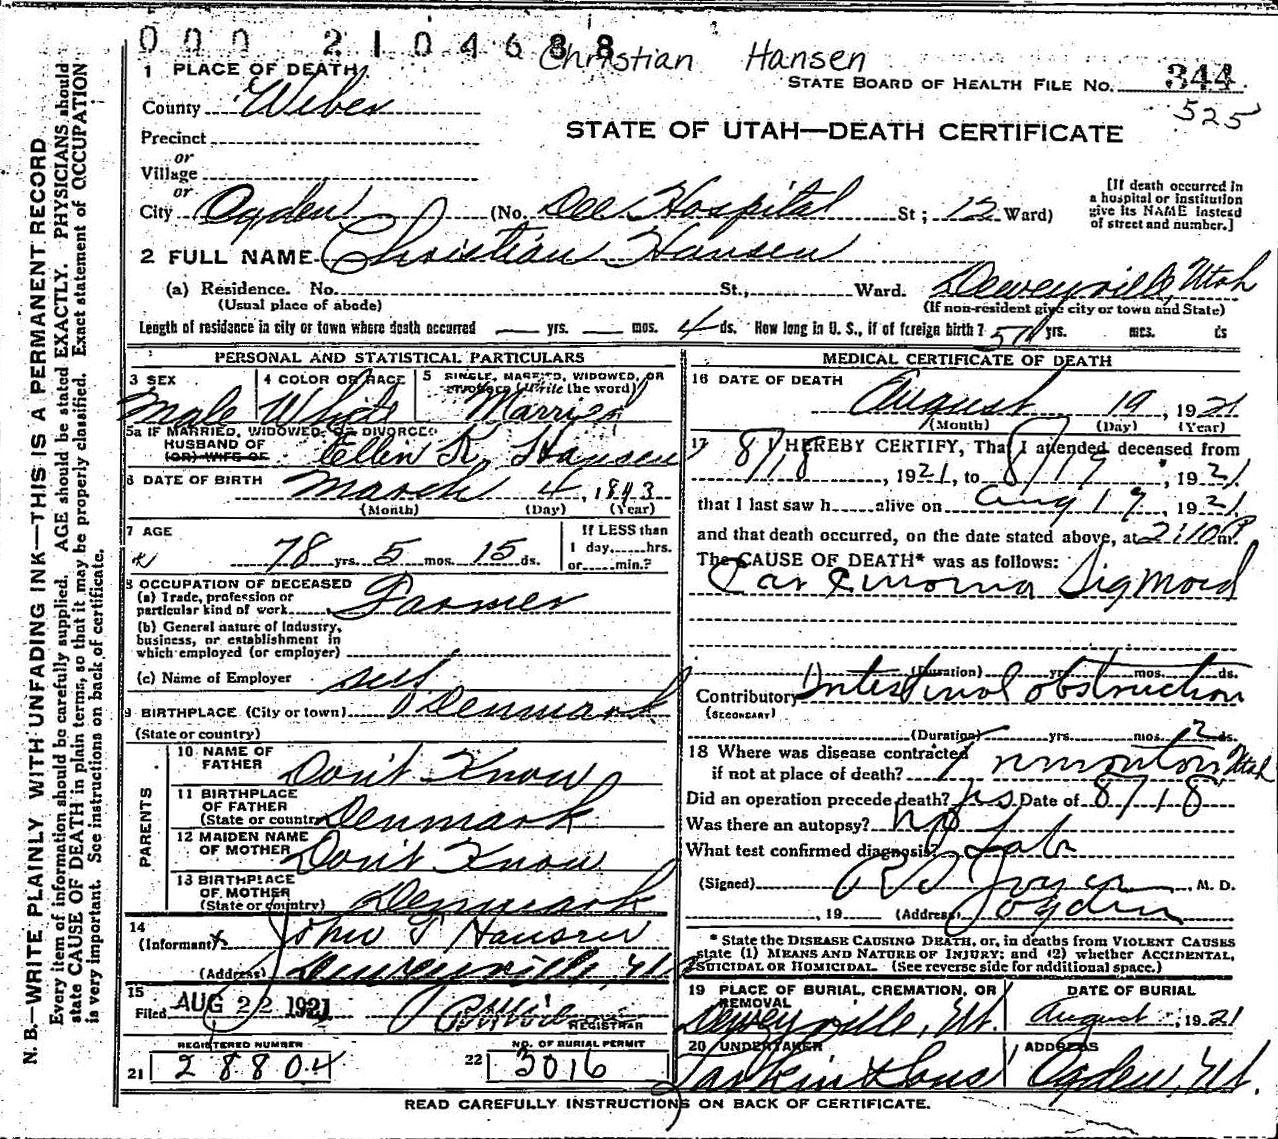 0 0 0 2 1 0 4 6 8 8
Christian Hansen
STATE BOARD OF HEALTH FILE No. 344
525
1 PLACE OF DEATH
County Weber
STATE OF UTAH—DEATH CERTIFICATE
Precinct
or
Village
or
City Ogden (No. Dee Hospital St; 12 Ward)
[If death occurred in
a hospital or institution
give its NAME instead
of street and number.]
2 FULL NAME Christian Hansen
(a) Residence. No. St., Ward. Deweyville, Utah
(Usual place of abode) (If non-resident give city or town and State)
Length of residence in city or town where death occurred yrs. mos. 4 ds. How long in U. S., if of foreign birth? yrs. mos. ds
PERSONAL AND STATISTICAL PARTICULARS
3 SEX Male
4 COLOR OR RACE White
5 SINGLE, MARRIED, WIDOWED, OR DIVORCED (Write the word) Married
5a IF MARRIED, WIDOWED, OR DIVORCED
HUSBAND OF Ellen K. Hansen
(OR) WIFE OF
6 DATE OF BIRTH March 4, 1843
(Month) (Day) (Year)
7 AGE 78 yrs. 5 mos. 15 ds.
If LESS than
1 day, hrs.
or min.?
8 OCCUPATION OF DECEASED
(a) Trade, profession or
particular kind of work Farmer
(b) General nature of Industry,
business, or establishment in
which employed (or employer)
(c) Name of Employer self
9 BIRTHPLACE (City or town) Denmark
(State or country)
PARENTS
10 NAME OF
FATHER Don't Know
11 BIRTHPLACE
OF FATHER
(State or country) Denmark
12 MAIDEN NAME
OF MOTHER Don't Know
13 BIRTHPLACE
OF MOTHER
(State or country) Denmark
14
(Informant) John Hansen
(Address) Deweyville, Ut
15
Filed AUG 22 1921
REGISTRAR
REGISTERED NUMBER
21 28804
NO. OF BURIAL PERMIT
22 3016
MEDICAL CERTIFICATE OF DEATH
16 DATE OF DEATH
August 19, 1921
(Month) (Day) (Year)
17 I HEREBY CERTIFY, That I attended deceased from
8/18, 1921, to 8/19, 1921.
that I last saw h alive on Aug 19, 1921,
and that death occurred, on the date stated above, at 2:10 P m.
The CAUSE OF DEATH* was as follows:
Carcinoma Sigmoid
(Duration) yrs. mos. ds.
Contributory Intestinal obstruction
(SECONDARY)
(Duration) yrs. mos. 2 ds.
18 Where was disease contracted
if not at place of death? Utah
Did an operation precede death? yes Date of 8/18
Was there an autopsy? no
What test confirmed diagnosis? Lab
(Signed) M. D.
, 19 (Address) Ogden
* State the DISEASE CAUSING DEATH, or, in deaths from VIOLENT CAUSES
state (1) MEANS AND NATURE OF INJURY; and (2) whether ACCIDENTAL,
SUICIDAL OR HOMICIDAL. (See reverse side for additional space.)
19 PLACE OF BURIAL, CREMATION, OR
REMOVAL
Deweyville, Ut.
DATE OF BURIAL
August, 1921
20 UNDERTAKER
Larkin & Sons
ADDRESS
Ogden, Ut.
READ CAREFULLY INSTRUCTIONS ON BACK OF CERTIFICATE.
N. B.—WRITE PLAINLY WITH UNFADING INK—THIS IS A PERMANENT RECORD
Every item of information should be carefully supplied. AGE should be stated EXACTLY. PHYSICIANS should
state CAUSE OF DEATH in plain terms, so that it may be properly classified. Exact statement of OCCUPATION
is very important. See instructions on back of certificate.